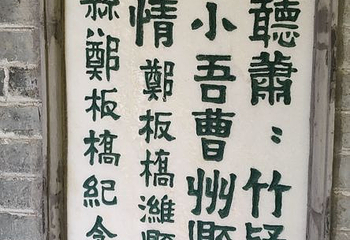 聽蕭：竹疑
小吾曹州縣
情 鄭板橋濰縣
縣鄭板橋紀念